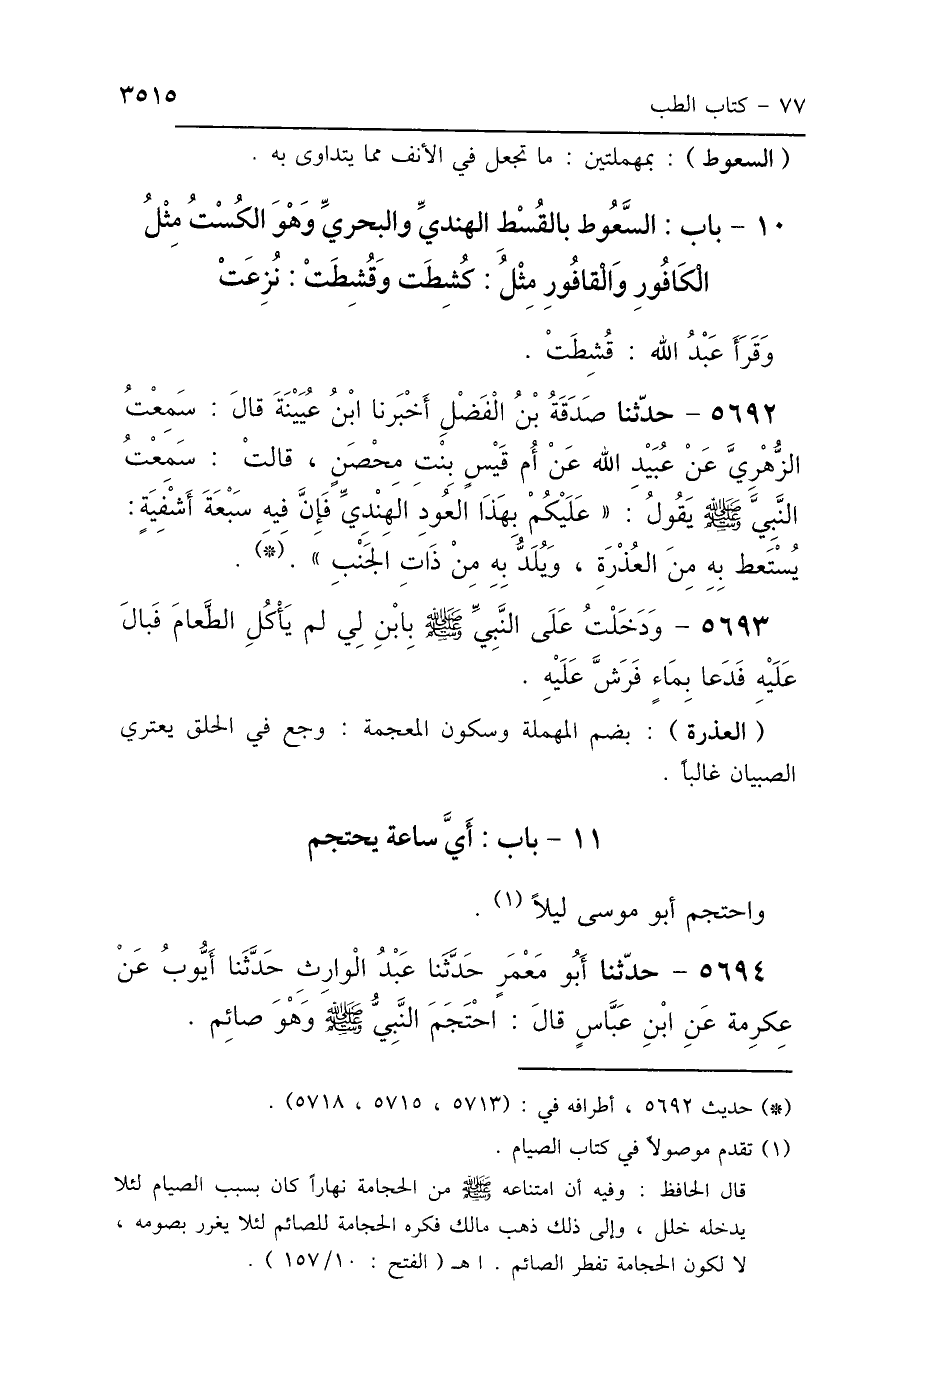 ٧٧ - كتاب الطب ٣٥١٥
( السعوط ) : بمهملتين : ما تجعل في الأنف مما يتداوى به .
١٠ - باب : السَّعُوط بالقُسْط الهنديِّ والبحريِّ وَهْوَ الكُسْتُ مِثْلُ
الْكَافُورِ وَالْقافُورِ مِثْلُ : كُشِطَت وَقُشِطَتْ : نُزِعَتْ
وَقَرَأَ عَبْدُ الله : قُشِطَتْ .
٥٦٩٢ - حدّثنا صَدَقَةُ بْنُ الْفَضْلِ أَخْبَرنا ابْنُ عُيَيْنَةَ قالَ : سَمِعْتُ
الزُّهْرِيَّ عَنْ عُبَيْدِ الله عَنْ أُم قَيْسٍ بِنْتِ مِحْصَنٍ ، قالتْ : سَمِعْتُ
النَّبِيَّ ﷺ يَقُولُ : « عَلَيْكُمْ بِهَذَا العُودِ الهِنْدِيِّ فَإِنَّ فِيهِ سَبْعَةَ أَشْفِيَةٍ :
يُسْتَعط بِهِ مِنَ العُذْرَةِ ، وَيُلَدُّ بِهِ مِنْ ذَاتِ الجَنْبِ » . (*) .
٥٦٩٣ - وَدَخَلْتُ عَلَى النَّبِيِّ ﷺ بِابْنِ لِي لم يَأْكُلِ الطَّعامَ فَبالَ
عَلَيْهِ فَدَعا بِمَاءٍ فَرَشَّ عَلَيْهِ .
( العذرة ) : بضم المهملة وسكون المعجمة : وجع في الحلق يعتري
الصبيان غالباً .
١١ - باب : أَيَّ ساعة يحتجم
واحتجم أبو موسى ليلاً (١) .
٥٦٩٤ - حدّثنا أَبُو مَعْمَرٍ حَدَّثَنا عَبْدُ الْوارِثِ حَدَّثَنا أَيُّوبُ عَنْ
عِكرِمة عَنِ ابْنِ عَبَّاسٍ قالَ : احْتَجَمَ النَّبِيُّ ﷺ وَهْوَ صائِم .
(*) حديث ٥٦٩٢ ، أطرافه في : (٥٧١٣ ، ٥٧١٥ ، ٥٧١٨) .
(١) تقدم موصولاً في كتاب الصيام .
قال الحافظ : وفيه أن امتناعه ﷺ من الحجامة نهاراً كان بسبب الصيام لئلا
يدخله خلل ، وإلى ذلك ذهب مالك فكره الحجامة للصائم لئلا يغرر بصومه ،
لا لكون الحجامة تفطر الصائم . ا هـ ( الفتح : ١٥٧/١٠ ) .